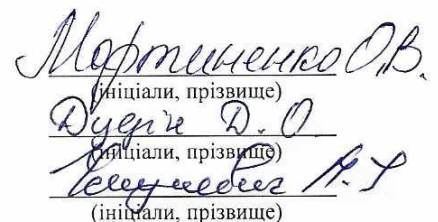 Мартиненко О.В.
(ініціали, прізвище)
Дудін Д.О.
(ініціали, прізвище)
(ініціали, прізвище)